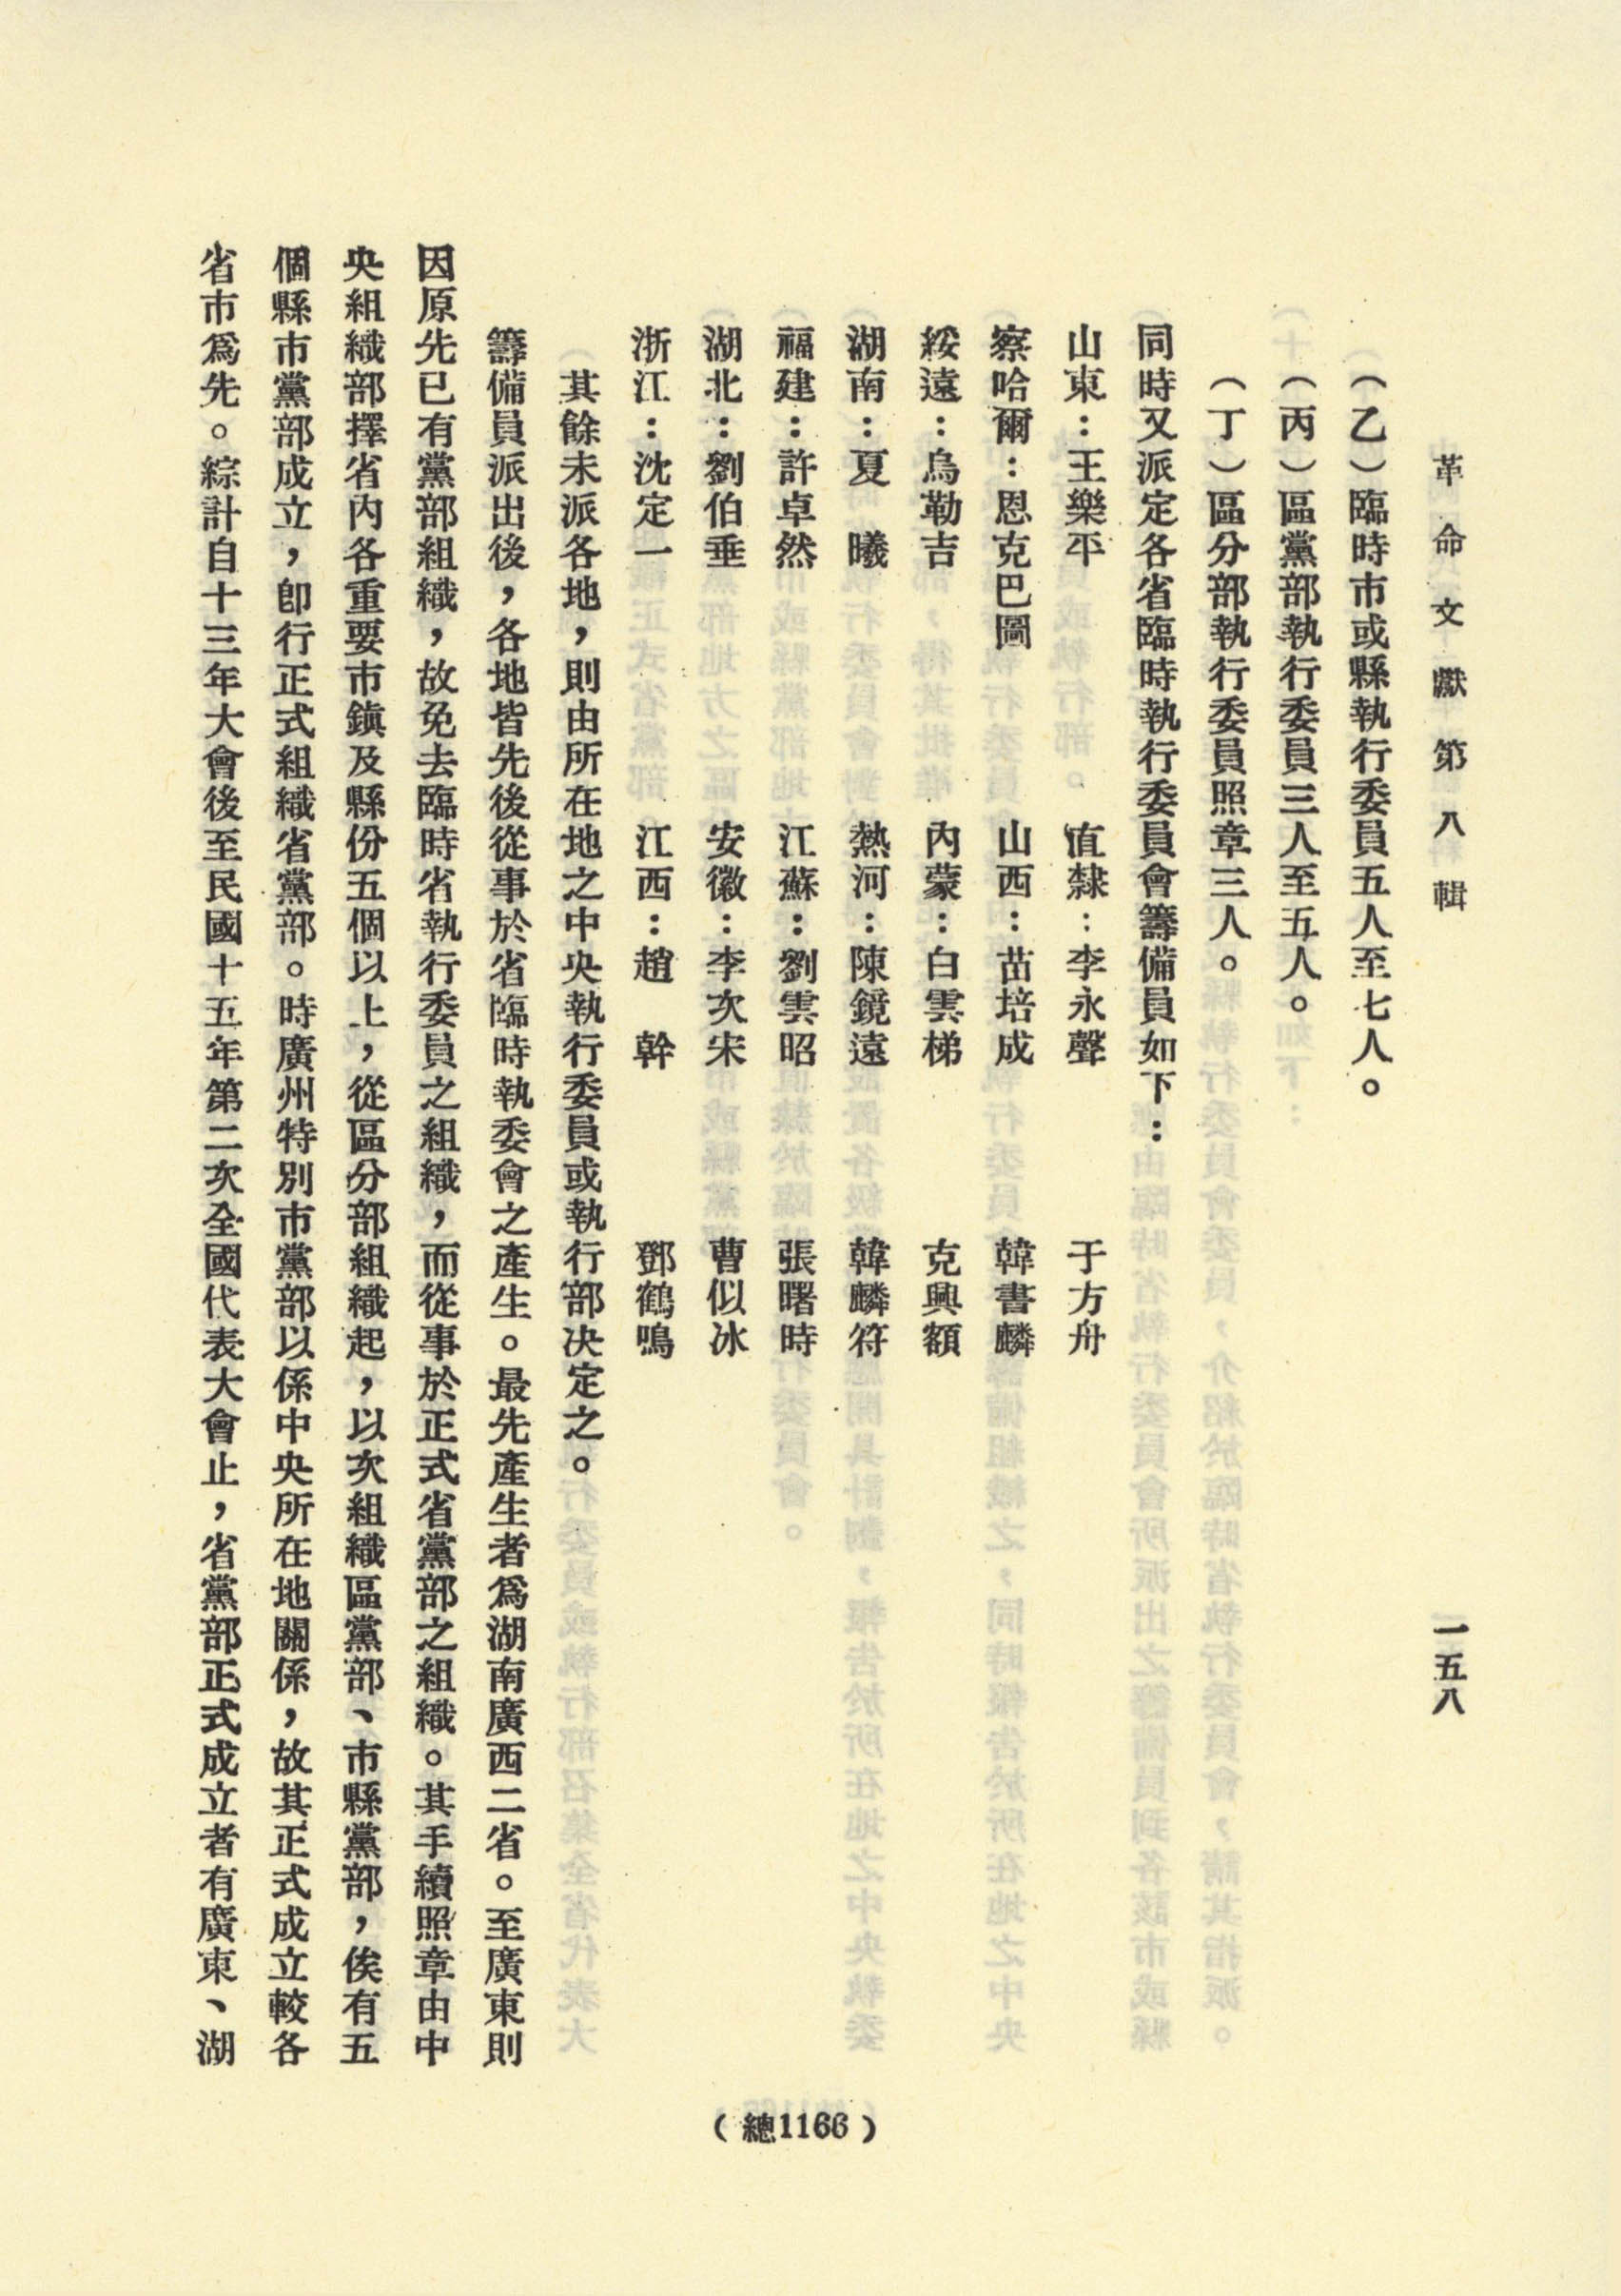 革命文獻第八輯
一五八
（乙）臨時市或縣執行委員五人至七人。
（丙）區黨部執行委員三人至五人。
（丁）區分部執行委員照章三人。
同時又派定各省臨時執行委員會籌備員如下：
山東：王樂平　直隸：李永聲　于方舟
察哈爾：恩克巴圖　山西：苗培成　韓書麟
綏遠：烏勒吉　內蒙：白雲梯　克興額
湖南：夏　曦　熱河：陳鏡遠　韓麟符
福建：許卓然　江蘇：劉雲昭　張曙時
湖北：劉伯垂　安徽：李次宋　曹似冰
浙江：沈定一　江西：趙　幹　鄧鶴鳴
其餘未派各地，則由所在地之中央執行委員或執行部決定之。
籌備員派出後，各地皆先後從事於省臨時執委會之產生。最先產生者爲湖南廣西二省。至廣東則
因原先已有黨部組織，故免去臨時省執行委員之組織，而從事於正式省黨部之組織。其手續照章由中
央組織部擇省內各重要市鎮及縣份五個以上，從區分部組織起，以次組織區黨部、市縣黨部，俟有五
個縣市黨部成立，卽行正式組織省黨部。時廣州特別市黨部以係中央所在地關係，故其正式成立較各
省市爲先。綜計自十三年大會後至民國十五年第二次全國代表大會止，省黨部正式成立者有廣東、湖
（總1166）